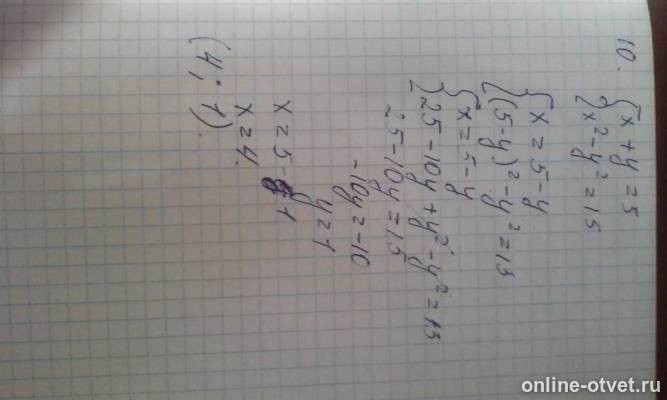 10. { x + y = 5
{ x² - y² = 15
{ x = 5 - y
{ (5-y)² - y² = 15
{ x = 5 - y
{ 25 - 10y + y² - y² = 15
25 - 10y = 15
-10y = -10
y = 1
x = 5 - 1
x = 4.
(4; 1).
online-otvet.ru